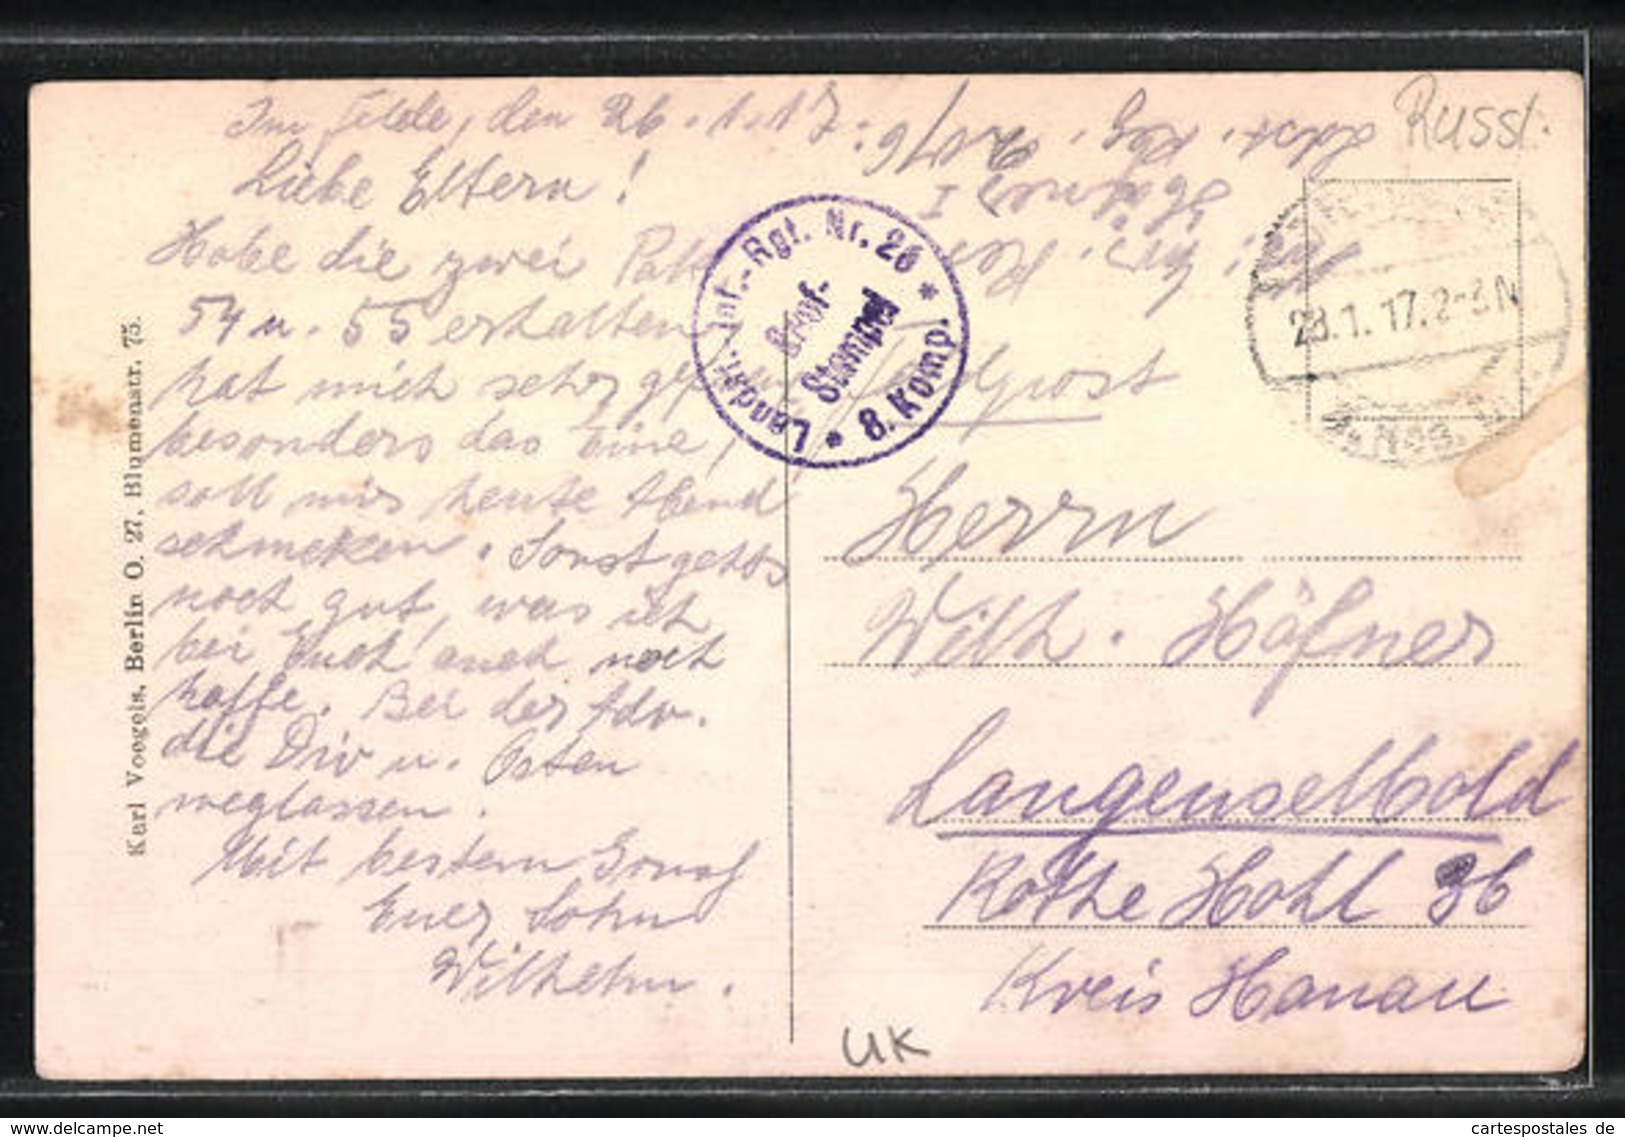 Im Felde, den 26.1.17.
Liebe Eltern!
Habe die zwei
54 u. 55 erhalten
hat mich sehr
besonders das Eine,
soll mir heute Abend
schmecken. Sonst gehts
noch gut, was ich
bei Euch auch noch
hoffe. Bei der Adr.
die Div u. Osten
weglassen.
Mit bestem Gruß
Euer Sohn
Wilhelm.
Karl Voegels, Berlin O. 27, Blumenstr. 75.
Landst. Inf.-Rgt. Nr. 26
Brief-
Stempel
* 8. Komp. *
Russl.
28.1.17.2-3N
Feldpost
Herrn
Wilh. Häfner
Langenselbold
Rothe Hohl 36
Kreis Hanau
UK
www.delcampe.net
cartespostales de